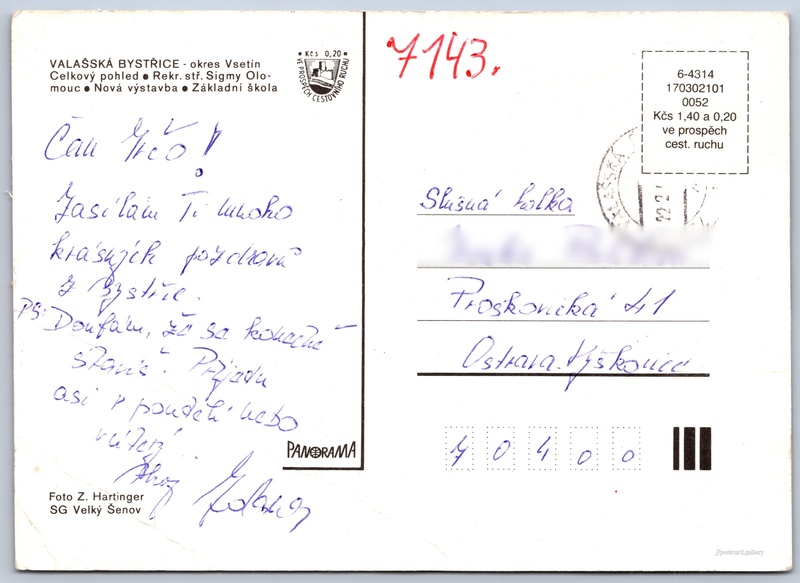 VALAŠSKÁ BYSTŘICE - okres Vsetín
Celkový pohled ● Rekr. stř. Sigmy Olo-
mouc ● Nová výstavba ● Základní škola
Kčs 0,20
VE PROSPĚCH CESTOVNÍHO RUCHU
7143.
6-4314
170302101
0052
Kčs 1,40 a 0,20
ve prospěch
cest. ruchu
VALAŠSKÁ
Čau
Zasílám Ti mnoho
krásných pozdravů
z Bystřice.
PS: Doufám, že se konečně
Přijedu
asi v pondělí nebo
úterý
Ahoj Zdena
Slušná holka
Proskovická 41
Ostrava-Výškovice
70400
PANORAMA
Foto Z. Hartinger
SG Velký Šenov
postcard.gallery